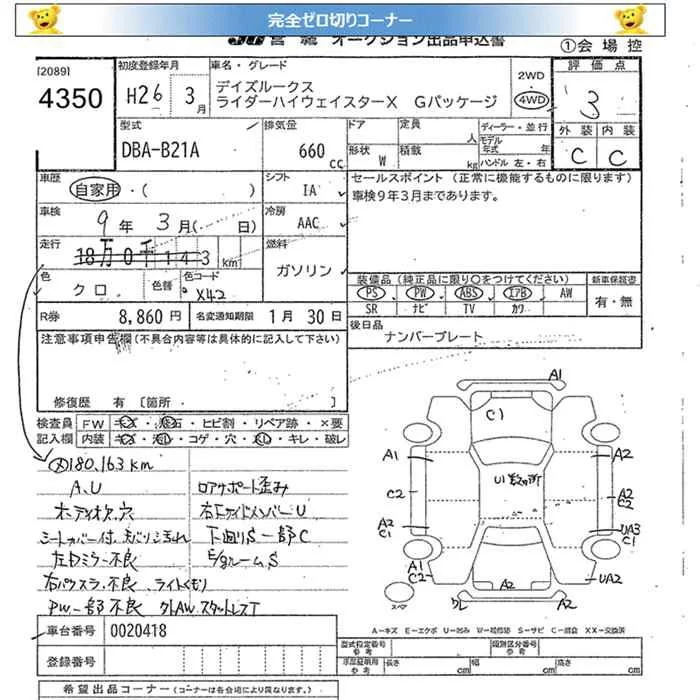 完全ゼロ切りコーナー
オークション出品申込書
①会場控
[2089]
4350
初度登録年月
H26 3月
車名・グレード
デイズルークス
ライダーハイウェイスターX Gパッケージ
2WD
4WD
評価点
3
外装 内装
C C
型式
DBA-B21A
排気量
660 cc
ドア
形状 W
定員 人
積載 kg
ディーラー・並行
モデル年式 年
ハンドル 左・右
車歴
自家用・( )
シフト
IA
セールスポイント (正常に機能するものに限ります)
車検9年3月まであります。
車検
9年 3月( 日)
冷房
AAC
走行
18万0千143 km
燃料
ガソリン
色
クロ
色替
色コード
X42
装備品 (純正品に限り○をつけてください)
新車保証書
PS PW ABS エアB AW
SR ナビ TV カワ
有・無
R券
8,860 円
名変通知期限
1月 30日
後日品
ナンバープレート
注意事項申告欄 (不具合内容等は具体的に記入して下さい)
修復歴 有 [箇所・ ]
検査員記入欄
FW キズ・飛石・ヒビ割・リペア跡・×要
内装 キズ・汚れ・コゲ・穴・スレ・キレ・破レ
180,163km
A,U
オーディオア,穴
シートカバー付
左ドミラー不良
不良 ライトくもり
PW一部不良 外AW
ロアサポート歪み
右 サイドメンバーU
下廻りS一部C
E/gルームS
A1
C1
A1
A2
U1数ヶ所
C2
A2
C2
A2
C1
UA3
C1
A1
C2
A2
UA2
A2
スペア
A-キズ E-エクボ U-凹み W-補修跡 S-サビ C-腐食 XX-交換済
車台番号
0020418
登録番号
型式指定番号
参考
類別区分番号
参考
車庫証明用
参考
長さ cm
幅 cm
高さ cm
希望出品コーナー (コーナーは各会場により異なります。)